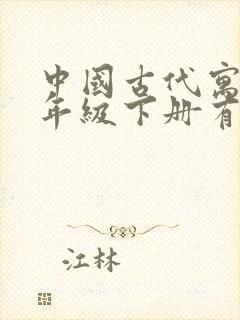 中國古代寓
年級下册有
江林